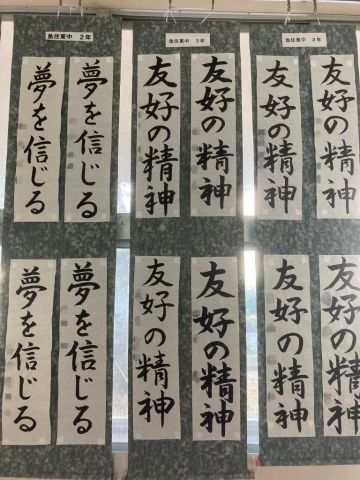 魚住東中 2年
夢を信じる
夢を信じる
夢を信じる
夢を信じる
魚住東中 3年
友好の精神
友好の精神
友好の精神
友好の精神
魚住東中 3年
友好の精神
友好の精神
友好の精神
友好の精神